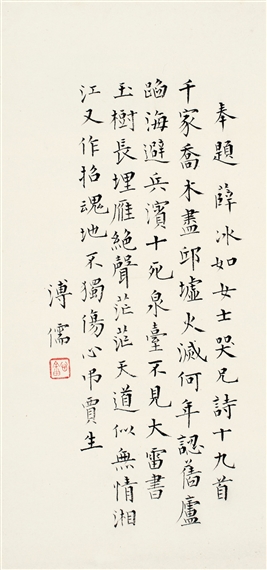 奉題薛冰如女士哭兄詩十九首
千家喬木盡邱墟火滅何年認舊廬
蹈海避兵濱十死泉臺不見大雷書
玉樹長埋雁絕聲茫茫天道似無情湘
江又作招魂地不獨傷心弔賈生
溥儒